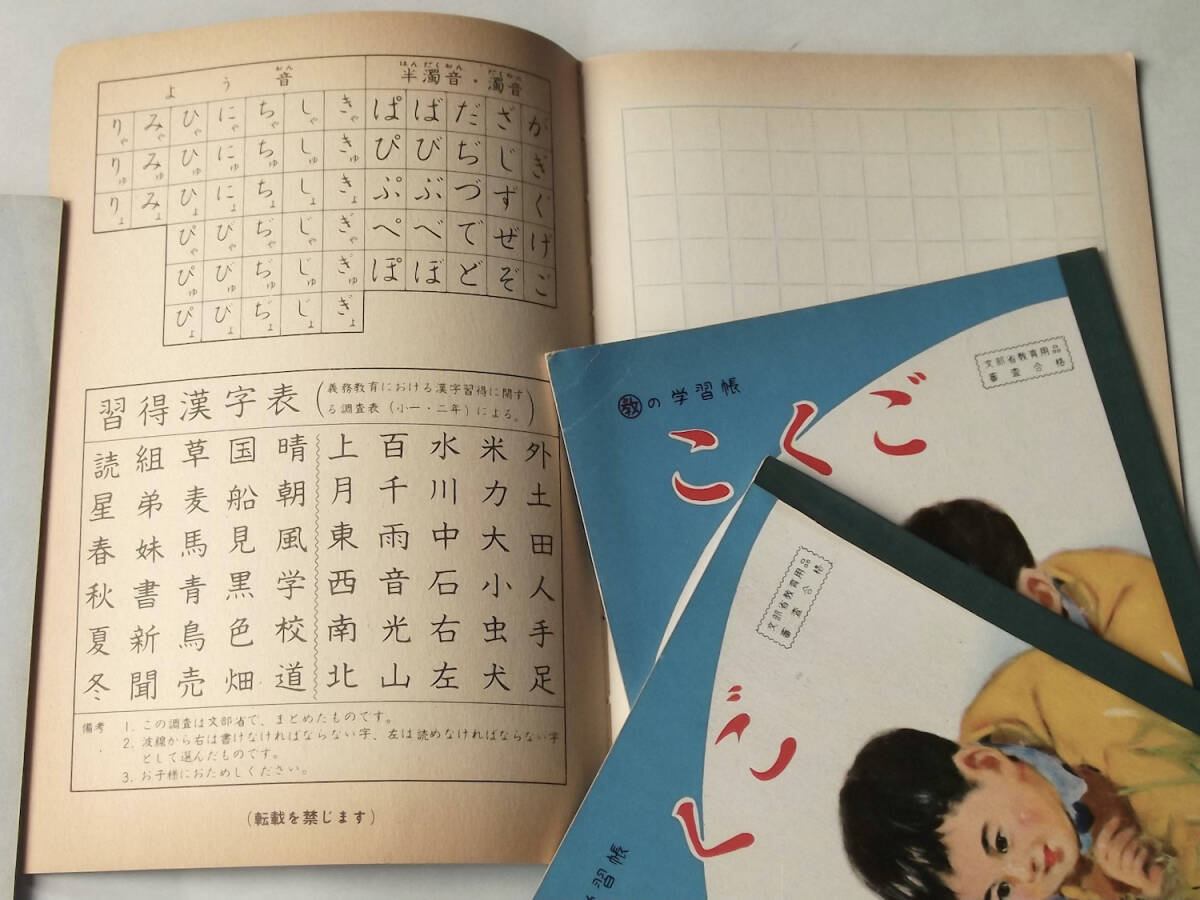 よう音
りゃ みゃ ひゃ にゃ ちゃ しゃ きゃ
りゅ みゅ ひゅ にゅ ちゅ しゅ きゅ
りょ みょ ひょ にょ ちょ しょ きょ
ぴゃ びゃ ぢゃ じゃ ぎゃ
ぴゅ びゅ ぢゅ じゅ ぎゅ
ぴょ びょ ぢょ じょ ぎょ
半濁音・濁音
ぱ ば だ ざ が
ぴ び ぢ じ ぎ
ぷ ぶ づ ず ぐ
ぺ べ で ぜ げ
ぽ ぼ ど ぞ ご
習得漢字表
(義務教育における漢字習得に関す
る調査表(小一・二年)による。)
読 組 草 国 晴 上 百 水 米 外
星 弟 麦 船 朝 月 千 川 力 土
春 妹 馬 見 風 東 雨 中 大 田
秋 書 青 黒 学 西 音 石 小 人
夏 新 鳥 色 校 南 光 右 虫 手
冬 聞 売 畑 道 北 山 左 犬 足
備考 1. この調査は文部省で、まとめたものです。
2. 波線から右は書けなければならない字、左は読めなければならない字
として選んだものです。
3. お子様におためしください。
(転載を禁じます)
教の学習帳
こくご
文部省教育用品
審査合格
文部省教育用品
審査合格
くご
習帳